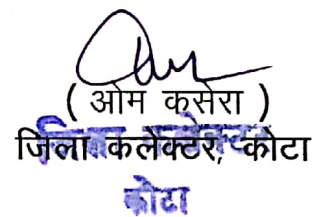 ( ओम कसेरा )
जिला कलेक्टर, कोटा
कोटा